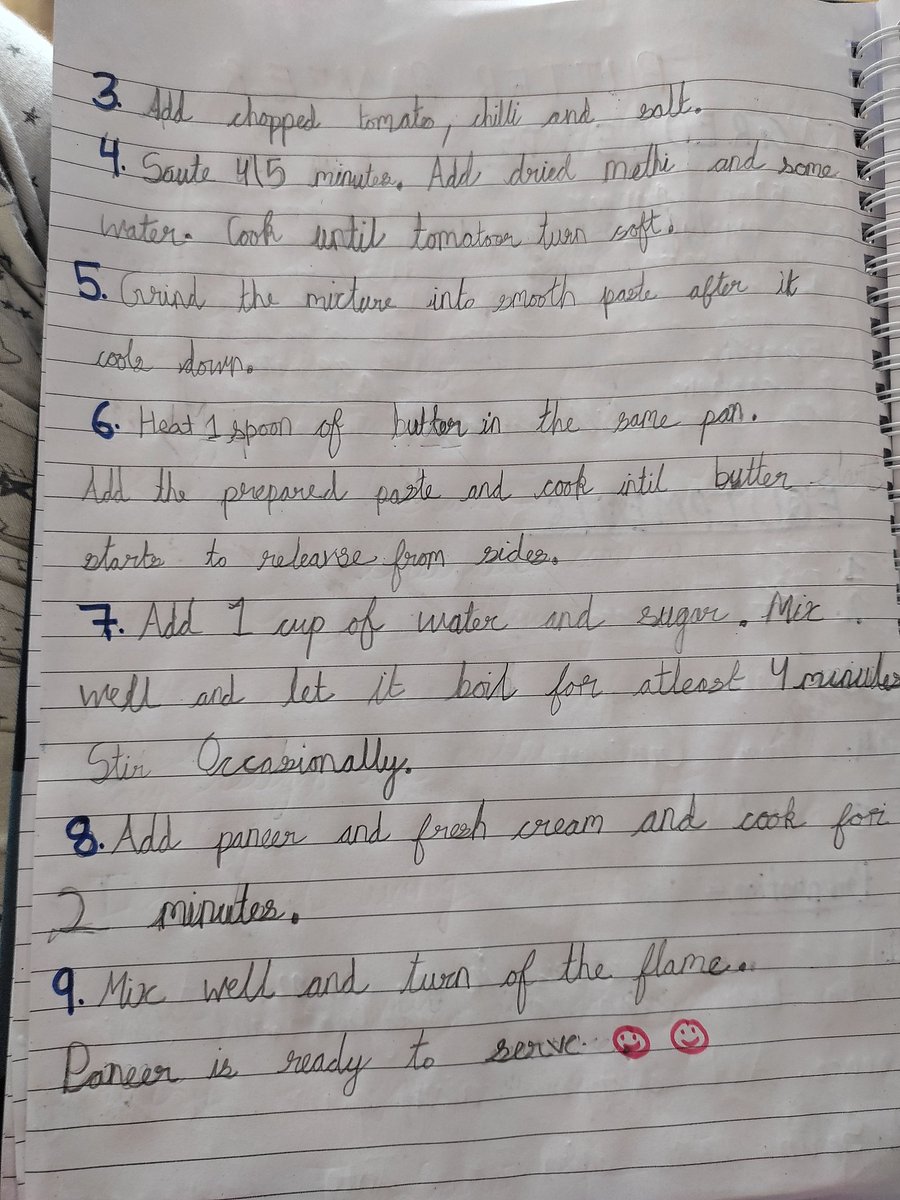 3. Add chopped tomato, chilli and salt.
4. Saute 4\5 minutes. Add dried methi and some
water. Cook until tomatoer turn soft.
5. Grind the micture into smooth paste after it
cools down.
6. Heat 1 spoon of butter in the same pan.
Add the prepared paste and cook intil butter
starts to releanse from sides.
7. Add 1 cup of water and sugar. Mix
well and let it boil for atleast 4 minutes
Stir Occasionally.
8. Add paneer and fresh cream and cook for
2 minutes.
9. Mix well and turn of the flame.
Paneer is ready to serve